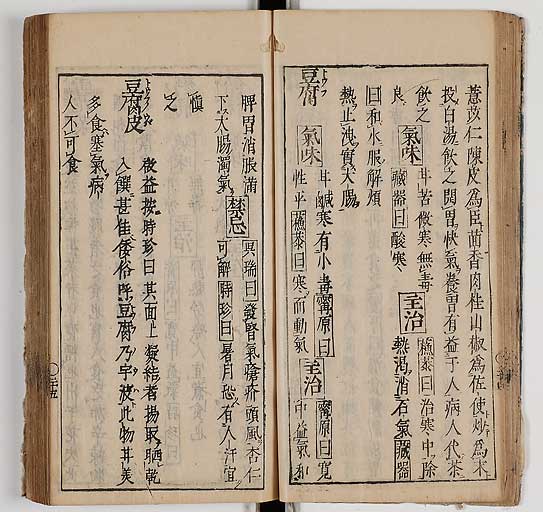 薏苡仁陳皮為臣茴香肉桂山椒為佐使炒為末
投白湯飲之開胃快氣養胃有益于人病人代茶
飲之
良
氣味
甘苦微寒無毒
藏器曰酸寒
主治
蘓恭曰治寒中除
熱渇消石氣藏器
曰和水服解煩
熱止洩實大腸
豆腐
トウフ
氣味
甘鹹寒有小毒寗原曰
性平蘓恭曰寒而動氣
主治
寗原曰寬
中益氣和
脾胃消脹滿
下大腸濁氣
禁忌
冥瑞曰發腎氣瘡疥頭風杏仁
可解時珍曰暑月恐有人汗宜
慎
之
豆腐皮
啟益按時珍曰其面上凝結者揚取晒乾
入饌甚佳倭俗呼豆腐乃宇波此物甘美
多食塞氣病
人不可食